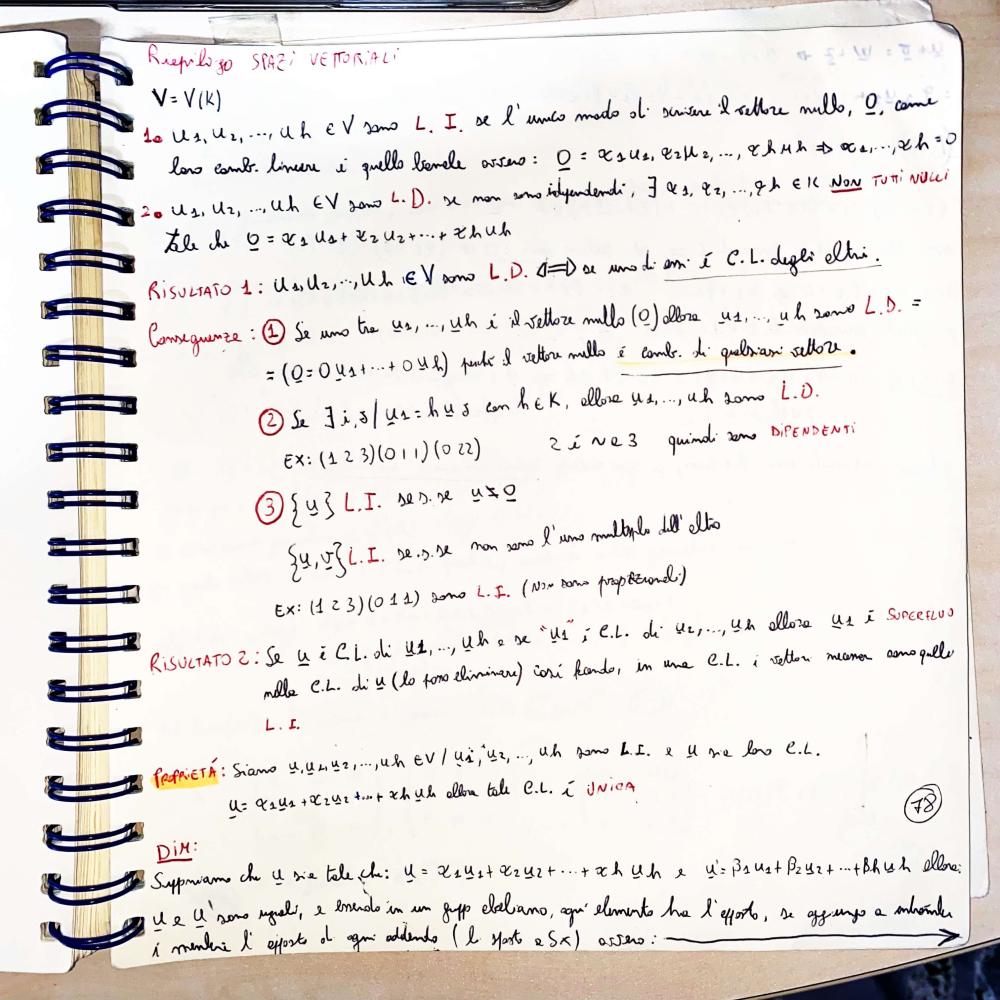 Riepilogo SPAZI VETTORIALI
V = V(K)
1. u1, u2, ..., uh ∈ V sono L. I. se l'unico modo di scrivere il vettore nullo, 0, come
loro comb. lineare è quello banale ovvero: 0 = α1u1, α2u2, ..., αhuh => α1, ..., αh = 0
2. u1, u2, ..., uh ∈ V sono L.D. se non sono idpendendi, ∃ α1, α2, ..., αh ∈ K NON TUTTI NULLI
tale che 0 = α1u1 + α2u2 + ... + αhuh
RISULTATO 1: u1, u2, ..., uh ∈ V sono L.D. <=> se uno di essi è C.L. degli altri.
Conseguenze: ① Se uno tra u1, ..., uh è il vettore nullo (0) allora u1, ..., uh sono L.D. =
= (0 = 0u1 + ... + 0uh) perché il vettore nullo è comb. di qualsiasi vettore.
② Se ∃ i, j / u1 = huj con h ∈ K, allora u1, ..., uh sono L.D.
EX: (1 2 3)(0 1 1)(0 2 2) 2 è ~ a 3 quindi sono DIPENDENTI
③ {u} L.I. se s. se u ≠ 0
{u, v} L.I. se.s.se non sono l'uno multiplo dell'altro
EX: (1 2 3)(0 1 1) sono L.I. (NON sono proporzionali)
RISULTATO 2: Se u è C.L. di u1, ..., uh e se "u1" è C.L. di u2, ..., uh allora u1 è SUPERFLUO
nella C.L. di u (lo posso eliminare) così facendo, in una C.L. i vettori necessari sono quelli
L. I.
PROPRIETÁ: Siano u, u1, u2, ..., uh ∈ V / u1, u2, ..., uh sono L.I. e u sia loro C.L.
u = α1u1 + α2u2 + ... + αhuh allora tale C.L. è UNICA
78
DIM:
Suppniamo che u sia tale che: u = α1u1 + α2u2 + ... + αhuh e u' = β1u1 + β2u2 + ... + βhuh allora:
u e u' sono uguali, e essendo in un gruppo abeliano, ogni elemento ha l'opposto, se aggiungo a entrambi
i membri l'opposto di ogni addendo (lo sposto a Sx) ovvero: